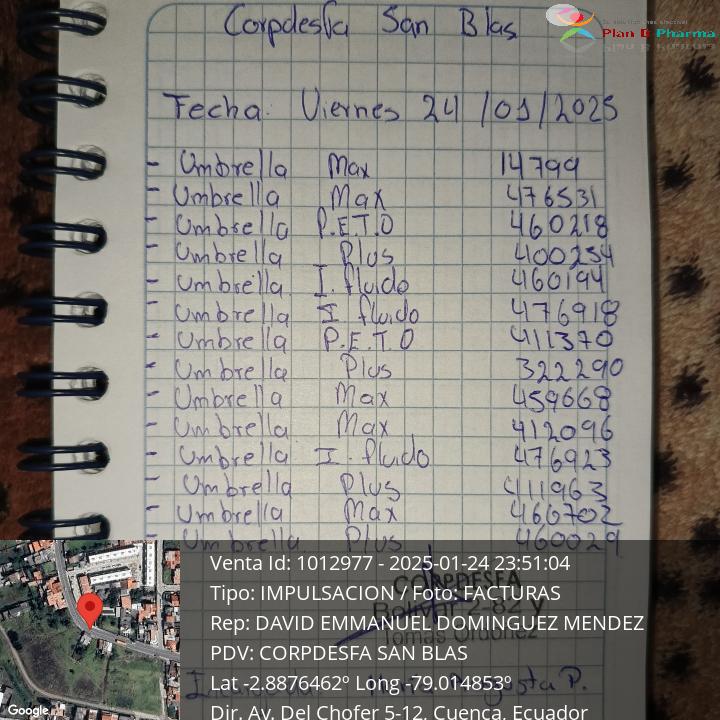 Corpdesfa San Blas
Plan B Pharma
Fecha: Viernes 24/01/2025
- Umbrella Max 14799
- Umbrella Max 476531
- Umbrella P.E.T.O 460218
- Umbrella Plus 400254
- Umbrella I. fluido 460194
- Umbrella I fluido 476918
- Umbrella P.E.T.O 411370
- Umbrella Plus 322290
- Umbrella Max 459668
- Umbrella Max 412096
- Umbrella I. fluido 476923
- Umbrella Plus 411963
- Umbrella Max 460702
- Umbrella Plus 460029
Venta Id: 1012977 - 2025-01-24 23:51:04
CORPDESFA
Tipo: IMPULSACION / Foto: FACTURAS
Bolívar 2-82 y
Rep: DAVID EMMANUEL DOMINGUEZ MENDEZ
Tomás Ordóñez
PDV: CORPDESFA SAN BLAS
Lat -2.8876462º Long -79.014853º
P.
Dir. Av. Del Chofer 5-12, Cuenca, Ecuador
Google